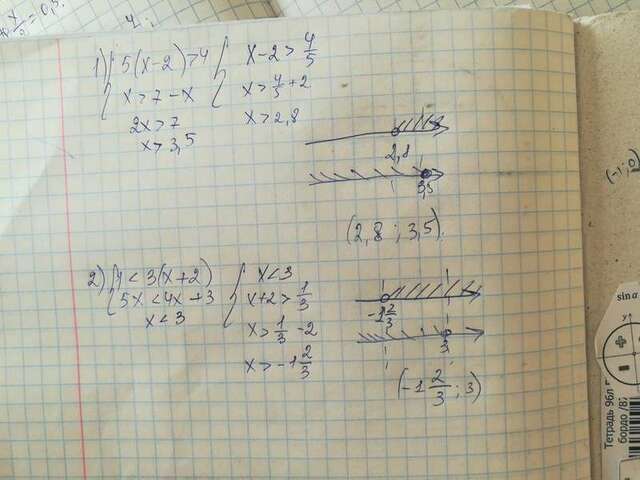 1) { 5(x-2)>4 { x-2>4/5
x>7-x x>4/5+2
2x>7 x>2,8
x>3,5
2,8
3,5
(2,8 ; 3,5)
2) { 1<3(x+2) { x<3
5x<4x+3 x+2>1/3
x<3 x>1/3-2
x>-1 2/3
-1 2/3
3
(-1 2/3 ; 3)
(-1;0)
sin α
Тетрадь 96л
бордо